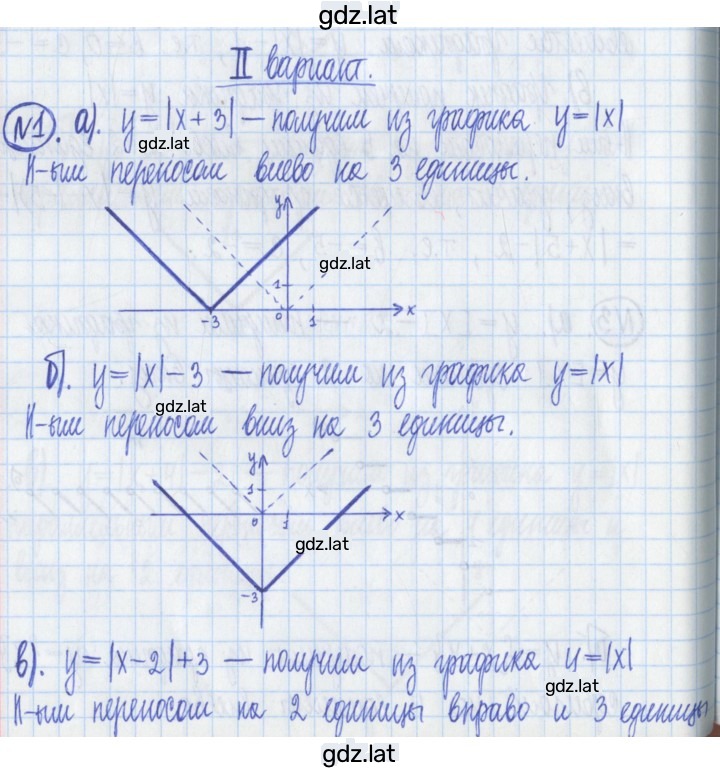 gdz.lat
II вариант.
№1. а). y=|x+3| — получим из графика y=|x|
gdz.lat
II-ым переносом влево на 3 единицы.
y
gdz.lat
1
-3 0 1 x
б). y=|x|-3 — получим из графика y=|x|
gdz.lat
II-ым переносом вниз на 3 единицы.
y
1
0 1 x
gdz.lat
-3
в). y=|x-2|+3 — получим из графика y=|x|
gdz.lat
II-ым переносом на 2 единицы вправо и 3 единицы
gdz.lat